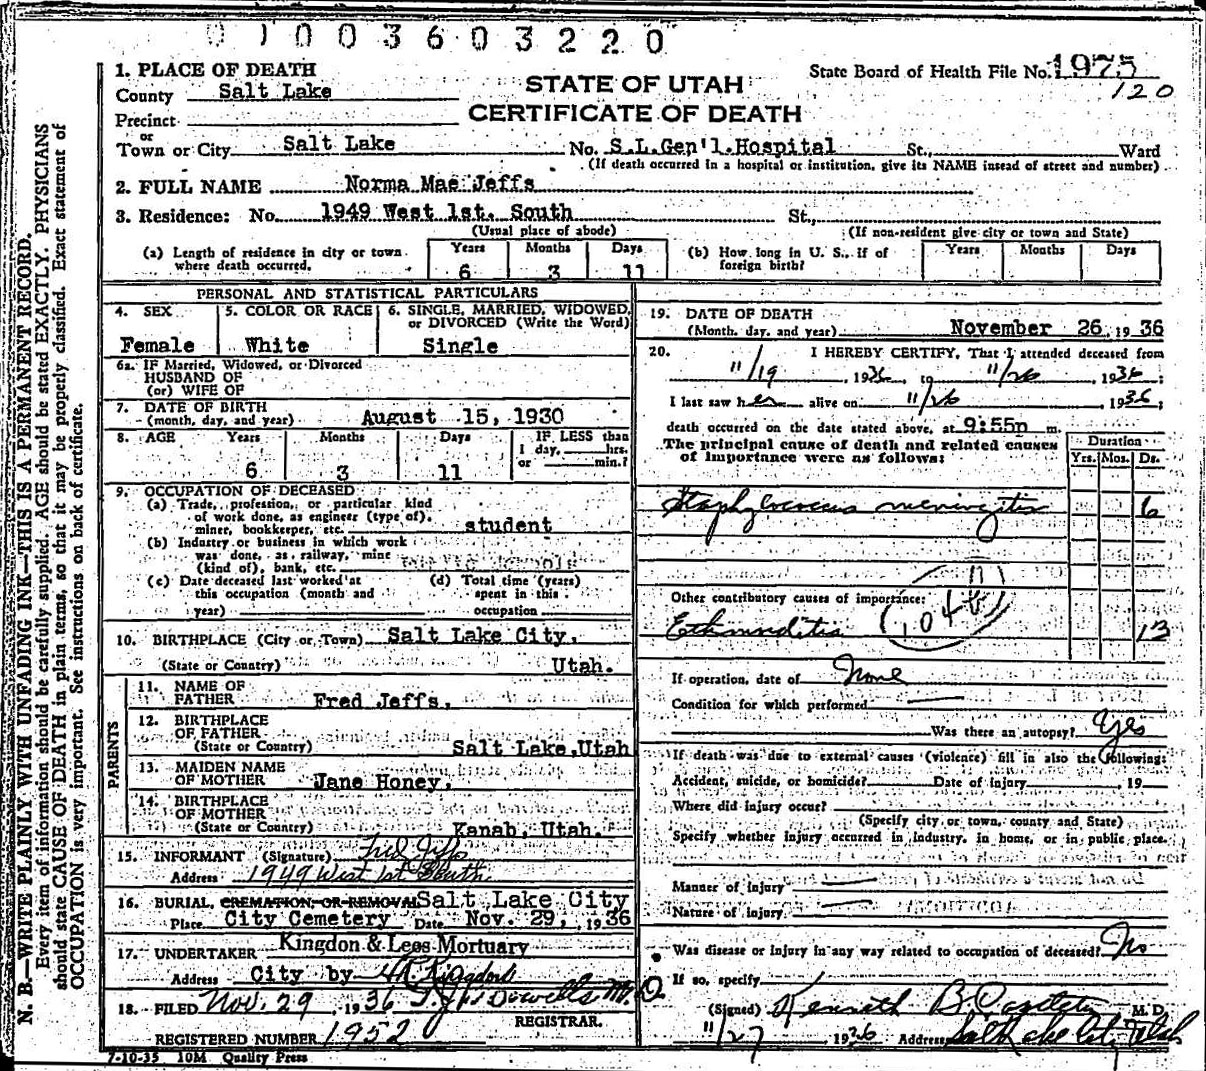 0 1 0 0 3 6 0 3 2 2 0
1. PLACE OF DEATH
County Salt Lake
Precinct
or
Town or City Salt Lake
STATE OF UTAH
CERTIFICATE OF DEATH
State Board of Health File No. 1975
120
No. S.L.Gen'l.Hospital St., Ward
(If death occurred in a hospital or institution, give its NAME insead of street and number)
2. FULL NAME Norma Mae Jeffs
3. Residence: No. 1949 West 1st. South St.,
(Usual place of abode) (If non-resident give city or town and State)
(a) Length of residence in city or town where death occurred. Years 6 Months 3 Days 11
(b) How long in U. S., if of foreign birth? Years Months Days
PERSONAL AND STATISTICAL PARTICULARS
4. SEX Female
5. COLOR OR RACE White
6. SINGLE, MARRIED, WIDOWED, or DIVORCED (Write the Word) Single
6a. IF Married, Widowed, or Divorced
HUSBAND OF
(or) WIFE OF
7. DATE OF BIRTH
(month, day, and year) August 15, 1930
8. AGE Years 6 Months 3 Days 11
IF LESS than
1 day, hrs.
or min.?
9. OCCUPATION OF DECEASED
(a) Trade, profession, or particular kind
of work done, as engineer (type of),
miner, bookkeeper, etc. student
(b) Industry or business in which work
was done, as railway, mine
(kind of), bank, etc.
(c) Date deceased last worked at
this occupation (month and
year)
(d) Total time (years)
spent in this
occupation
10. BIRTHPLACE (City or Town) Salt Lake City,
(State or Country) Utah.
PARENTS
11. NAME OF
FATHER Fred Jeffs,
12. BIRTHPLACE
OF FATHER
(State or Country) Salt Lake, Utah
13. MAIDEN NAME
OF MOTHER Jane Honey,
14. BIRTHPLACE
OF MOTHER
(State or Country) Kanab, Utah.
15. INFORMANT (Signature) Fred Jeffs
Address 1949 West 1st South
16. BURIAL, CREMATION, OR REMOVAL Salt Lake City
Place City Cemetery Date Nov. 29, 1936
17. UNDERTAKER Kingdon & Lees Mortuary
Address City by Kingdon
18. FILED Nov. 29, 1936 M.D
REGISTRAR.
REGISTERED NUMBER 1952
7-10-35 10M Quality Press
19. DATE OF DEATH
(Month, day, and year) November 26, 1936
20. I HEREBY CERTIFY, That I attended deceased from
11/19, 1936, to 11/26, 1936;
I last saw her alive on 11/26, 1936;
death occurred on the date stated above, at 9:55p m.
The principal cause of death and related causes
of importance were as follows:
Duration
Yrs. Mos. Ds.
Staphylococcus meningitis 6
Other contributory causes of importance:
Ethmoiditis 13
If operation, date of None
Condition for which performed
Was there an autopsy? Yes
If death was due to external causes (violence) fill in also the following:
Accident, suicide, or homicide? Date of injury , 19
Where did injury occur?
(Specify city or town, county and State)
Specify whether injury occurred in industry, in home, or in public place.
Manner of injury
Nature of injury
Was disease or injury in any way related to occupation of deceased? No
If so, specify
(Signed) Kenneth B. Castleton M. D.
11/27 1936 Address Salt Lake City Utah
N. B.—WRITE PLAINLY WITH UNFADING INK—THIS IS A PERMANENT RECORD.
Every item of information should be carefully supplied. AGE should be stated EXACTLY. PHYSICIANS
should state CAUSE OF DEATH in plain terms, so that it may be properly classified. Exact statement of
OCCUPATION is very important. See instructions on back of certificate.